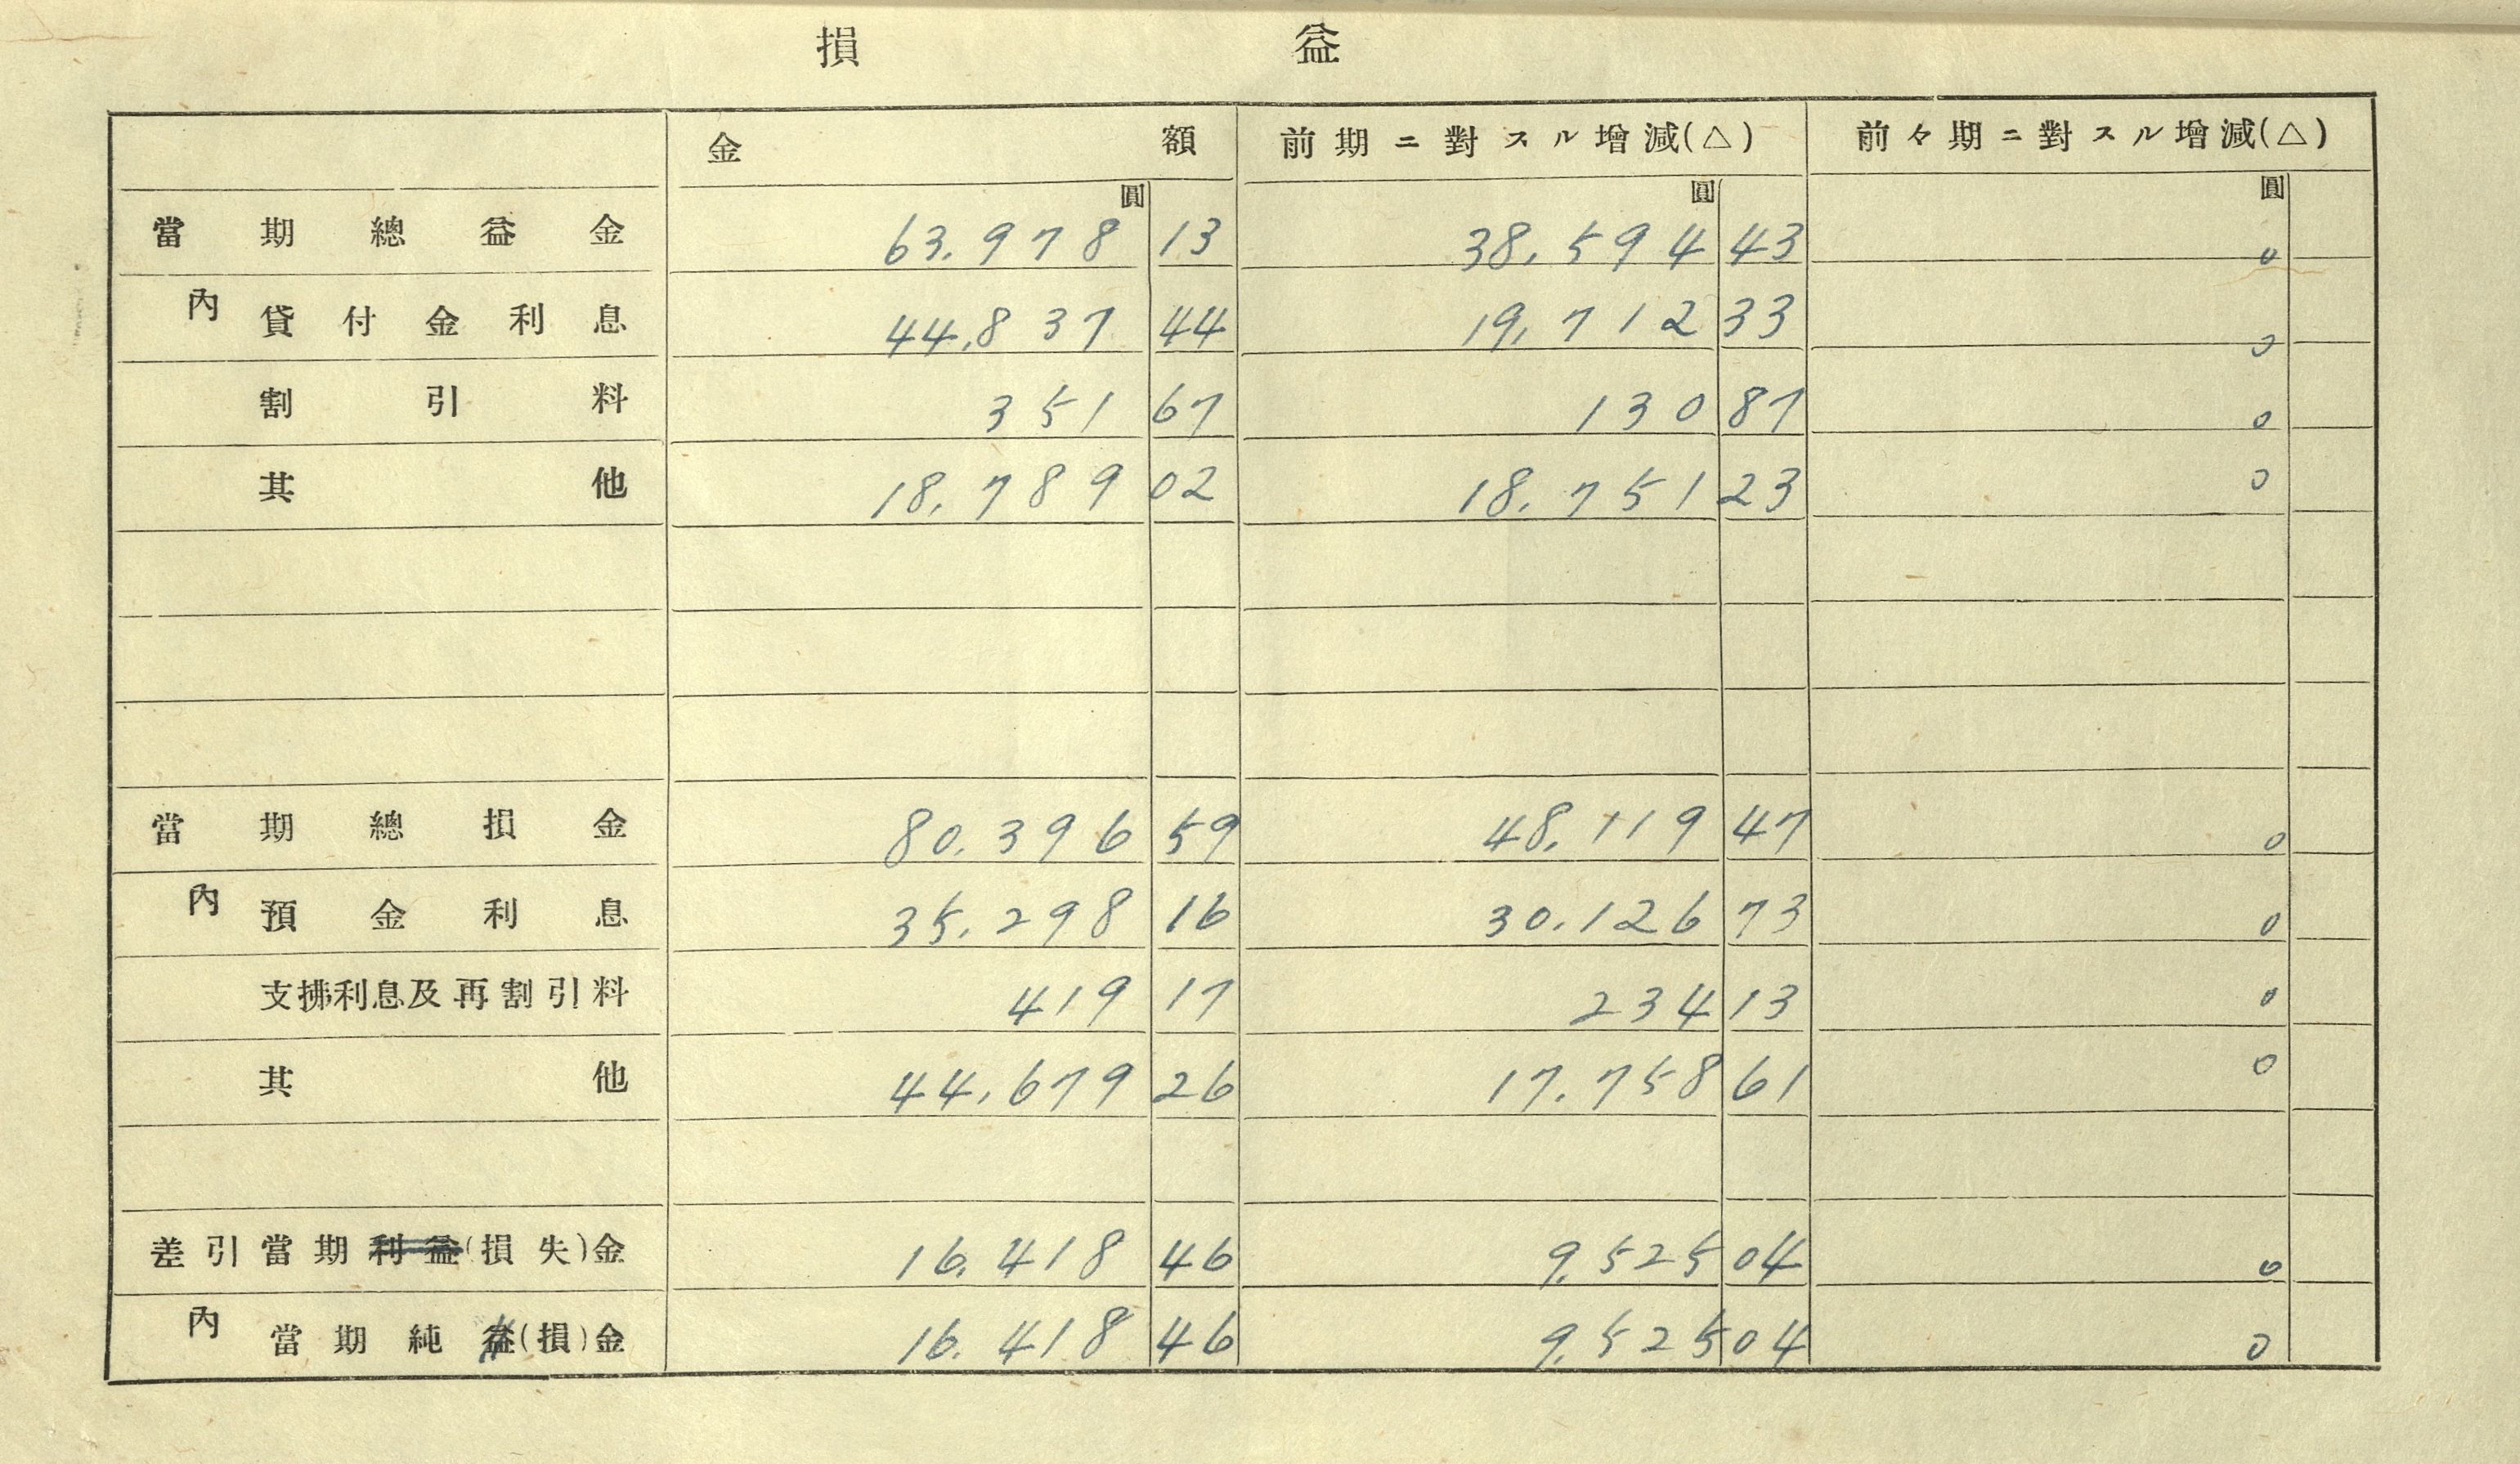 損益
金額 前期ニ對スル增減(△) 前々期ニ對スル增減(△)
圓 圓 圓
當期總益金 63.978 13 38.594 43 0
內 貸付金利息 44.837 44 19.712 33 0
割引料 351 67 130 87 0
其他 18.789 02 18.751 23 0
當期總損金 80.396 59 48.119 47 0
內 預金利息 35.298 16 30.126 73 0
支拂利息及再割引料 419 17 234 13 0
其他 44.679 26 17.758 61 0
差引當期利益(損失)金 16.418 46 9.525 04 0
內 當期純益(損)金 16.418 46 9.525 04 0